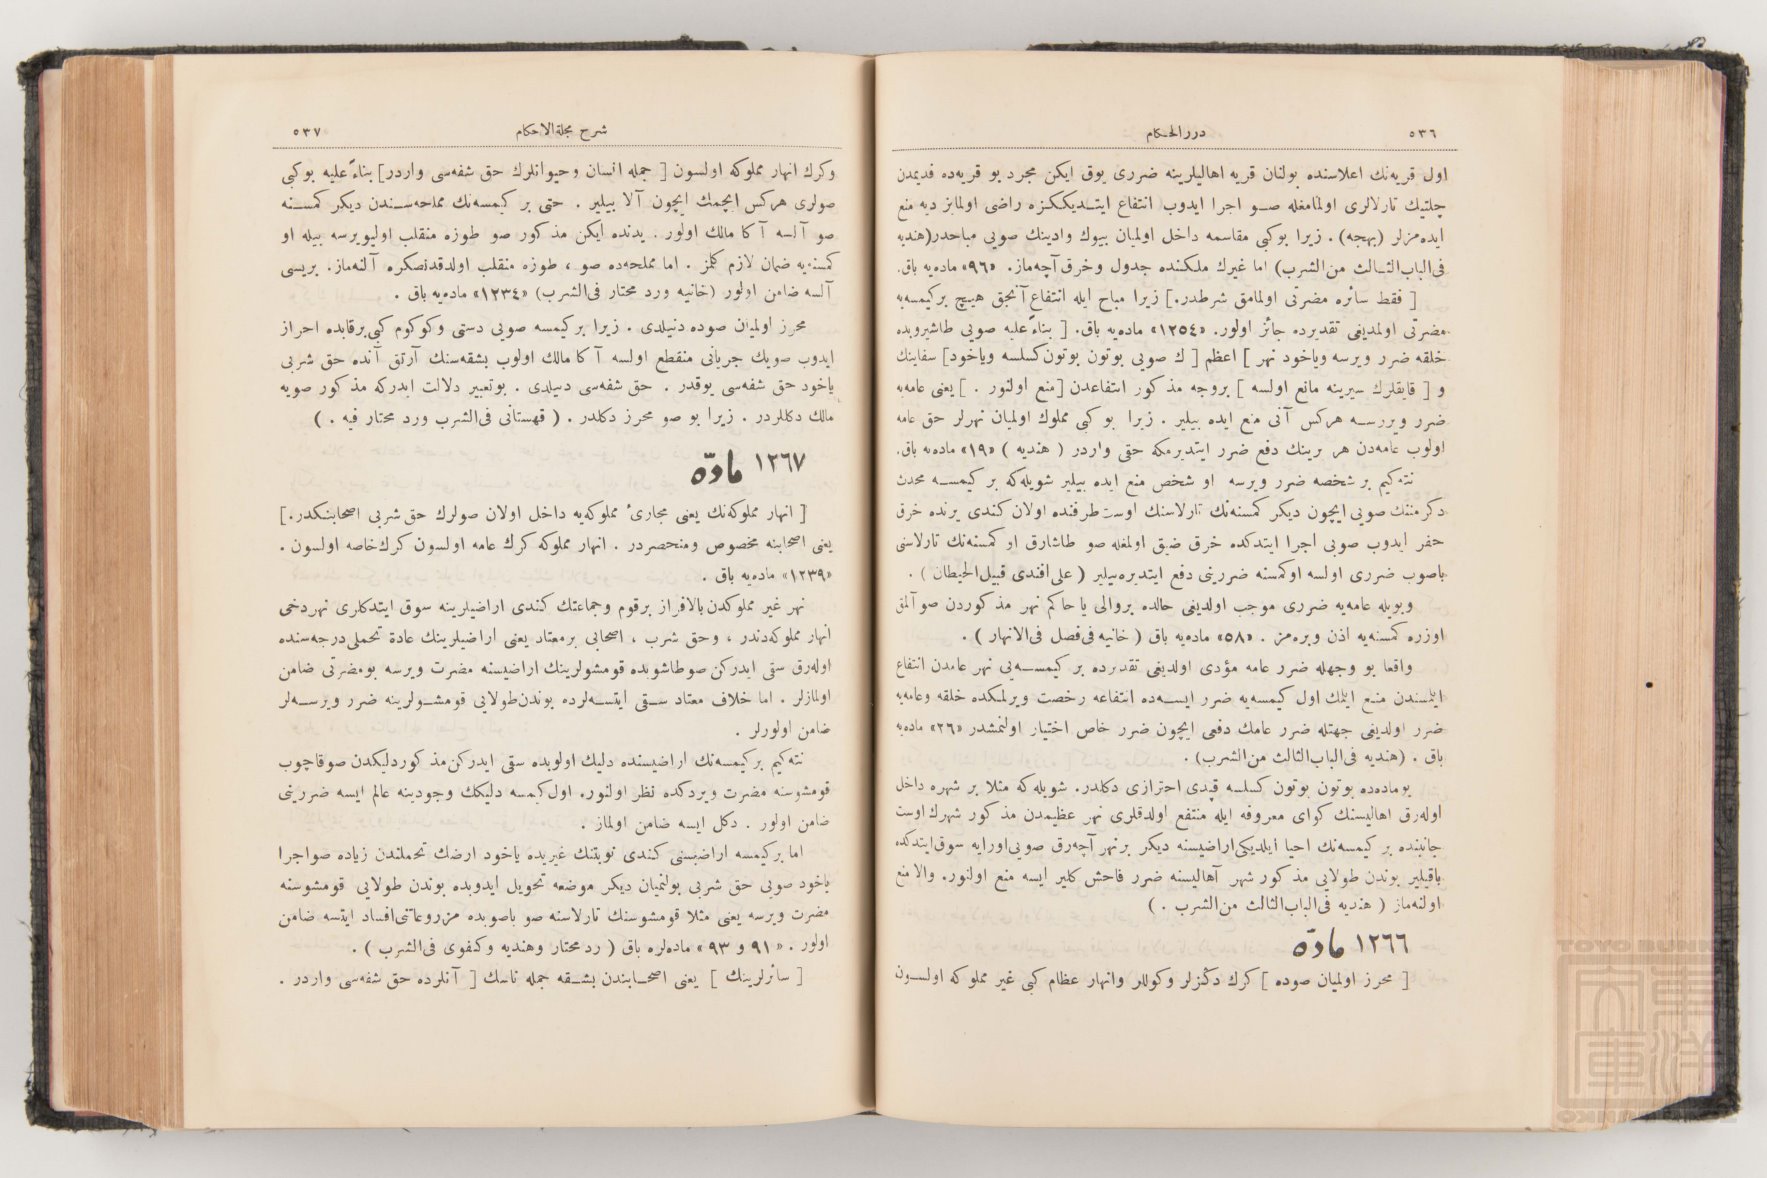 ٥٣٦
درر الحكام
اول قريه‌نك اعلاسنده بولنان قريه اهاليلرينه ضررى يوق ايكن مجرد بو قريه‌ده قديمدن
چلتيك تارلالرى اولمامغله صو اجرا ايدوب انتفاع ايتديككزه راضى اولمايز ديه منع
ايده‌مزلر (بهجه) . زيرا بوكبى مقاسمه داخل اولميان بيوك وادينك صويى مباحدر(هنديه
فى‌الباب‌الثالث من‌الشرب) اما غيرك ملكنده جدول وخرق آچه‌ماز. «٩٦» ماده‌يه باق.
[ فقط سائره مضرتى اولمامق شرطدر.] زيرا مباح ايله انتفاع آنجق هيچ بركيمسه‌يه
مضرتى اولمديغى تقديرده جائز اولور. «١٢٥٤» ماده‌يه باق. [ بناءً عليه صويى طاشيروبده
خلقه ضرر ويرسه وياخود نهر ] اعظم [ ك صويى بوتون بوتون كسلسه وياخود] سفاينك
و [ قايقلرك سيرينه مانع اولسه ] بروجه مذكور انتفاعدن [منع اولنور . ] يعنى عامه‌يه
ضرر ويررسه هركس آنى منع ايده بيلير . زيرا بو كبى مملوك اولميان نهرلر حق عامه
اولوب عامه‌دن هر برينك دفع ضرر ايتديرمكه حقى واردر ( هنديه ) «١٩» ماده‌يه باق.
نته‌كيم بر شخصه ضرر ويرسه او شخص منع ايده بيلير شويله‌كه بر كيمسه محدث
دكرمننك صويى ايچون ديكر كمسنه‌نك تارلاسنك اوست طرفنده اولان كندى يرنده خرق
حفر ايدوب صويى اجرا ايتدكده خرق ضيق اولمغله صو طاشارق او كمسنه‌نك تارلاسنى
باصوب ضررى اولسه اوكمسنه ضررينى دفع ايتديره‌بيلير ( على افندى قبيل‌الحيطان ) .
وبويله عامه‌يه ضررى موجب اولديغى حالده بروالى يا حاكم نهر مذكوردن صو آلمق
اوزره كمسنه‌يه اذن ويره‌مز . «٥٨» ماده‌يه باق ( خانيه فى‌فصل فى‌الانهار ) .
واقعا بو وجهله ضرر عامه مؤدى اولديغى تقديرده بر كيمسه‌يى نهر عامدن انتفاع
ايتمسندن منع ايتمك اول كيمسه‌يه ضرر ايسه‌ده انتفاعه رخصت ويرلمكده خلقه وعامه‌يه
ضرر اولديغى جهتله ضرر عامك دفعى ايچون ضرر خاص اختيار اولنمشدر «٢٦» ماده‌يه
باق . (هنديه فى‌الباب‌الثالث من‌الشرب) .
بوماده‌ده بوتون بوتون كسلسه قيدى احترازى دكلدر. شويله‌كه مثلا بر شهره داخل
اوله‌رق اهاليسنك كواى معروفه ايله منتفع اولدقلرى نهر عظيمدن مذكور شهرك اوست
جانبنده بر كيمسه‌نك احيا ايلديكى اراضيسنه ديكر برنهر آچه‌رق صويى اورايه سوق ايتدكده
باقيلير بوندن طولايى مذكور شهر آهاليسنه ضرر فاحش كلير ايسه منع اولنور. والا منع
اولنه‌ماز ( هنديه فى‌الباب‌الثالث من‌الشرب . )
١٢٦٦ مادّه
[ محرز اولميان صوده ] كرك دكزلر وكوللر وانهار عظام كبى غير مملوكه اولسون
شرح مجلة الاحكام
٥٣٧
وكرك انهار مملوكه اولسون [ جمله انسان وحيوانلرك حق شفه‌سى واردر] بناءً عليه بوكبى
صولرى هركس ايچمك ايچون آلا بيلير . حتى بر كيمسه‌نك مملحه‌سندن ديكر كمسنه
صو آلسه آكا مالك اولور . يدنده ايكن مذكور صو طوزه منقلب اوليويرسه بيله او
كمسنه‌يه ضمان لازم كلمز . اما مملحه‌ده صو ، طوزه منقلب اولدقدنصكره آلنه‌ماز. بريسى
آلسه ضامن اولور (خانيه ورد محتار فى‌الشرب) «١٢٣٤» ماده‌يه باق .
محرز اولميان صوده دنيلدى . زيرا بركيمسه صويى دستى وكوكوم كبى برقابده احراز
ايدوب صويك جريانى منقطع اولسه آكا مالك اولوب بشقه‌سنك آرتق آنده حق شربى
ياخود حق شفه‌سى يوقدر . حق شفه‌سى دنيلدى . بوتعبير دلالت ايدركه مذكور صويه
مالك دكللردر . زيرا بو صو محرز دكلدر . ( قهستانى فى‌الشرب ورد محتار فيه . )
١٢٦٧ مادّه
[ انهار مملوكه‌نك يعنى مجارئ مملوكه‌يه داخل اولان صولرك حق شربى اصحابنكدر.]
يعنى اصحابنه مخصوص ومنحصردر . انهار مملوكه كرك عامه اولسون كرك خاصه اولسون .
«١٢٣٩» ماده‌يه باق .
نهر غير مملوكدن بالافراز برقوم وجماعتك كندى اراضيلرينه سوق ايتدكلرى نهردخى
انهار مملوكه‌دندر ، وحق شرب ، اصحابى برمعتاد يعنى اراضيلرينك عادة تحملى درجه‌سنده
اوله‌رق سقى ايدركن صو طاشوبده قومشولرينك اراضيسنه مضرت ويرسه بومضرتى ضامن
اولمازلر . اما خلاف معتاد سقى ايتسه‌لرده بوندن طولايى قومشولرينه ضرر ويرسه‌لر
ضامن اولورلر .
نته‌كيم بركيمسه‌نك اراضيسنده دليك اولوبده سقى ايدركن مذكور دليكدن صو قاچوب
قومشوسنه مضرت ويردكده نظر اولنور. اول كيمسه دليكك وجودينه عالم ايسه ضررينى
ضامن اولور . دكل ايسه ضامن اولماز .
اما بركيمسه اراضيسنى كندى نوبتنك غيريده ياخود ارضك تحملندن زياده صو اجرا
ياخود صويى حق شربى بولنميان ديكر موضعه تحويل ايدوبده بوندن طولايى قومشوسنه
مضرت ويرسه يعنى مثلا قومشوسنك تارلاسنه صو باصوبده مزروعاتنى افساد ايتسه ضامن
اولور . « ٩١ و ٩٣ » ماده‌لره باق ( رد محتار وهنديه وكفوى فى‌الشرب ) .
[ سائرلرينك ] يعنى اصحابندن بشقه جمله ناسك [ آنلرده حق شفه‌سى واردر .